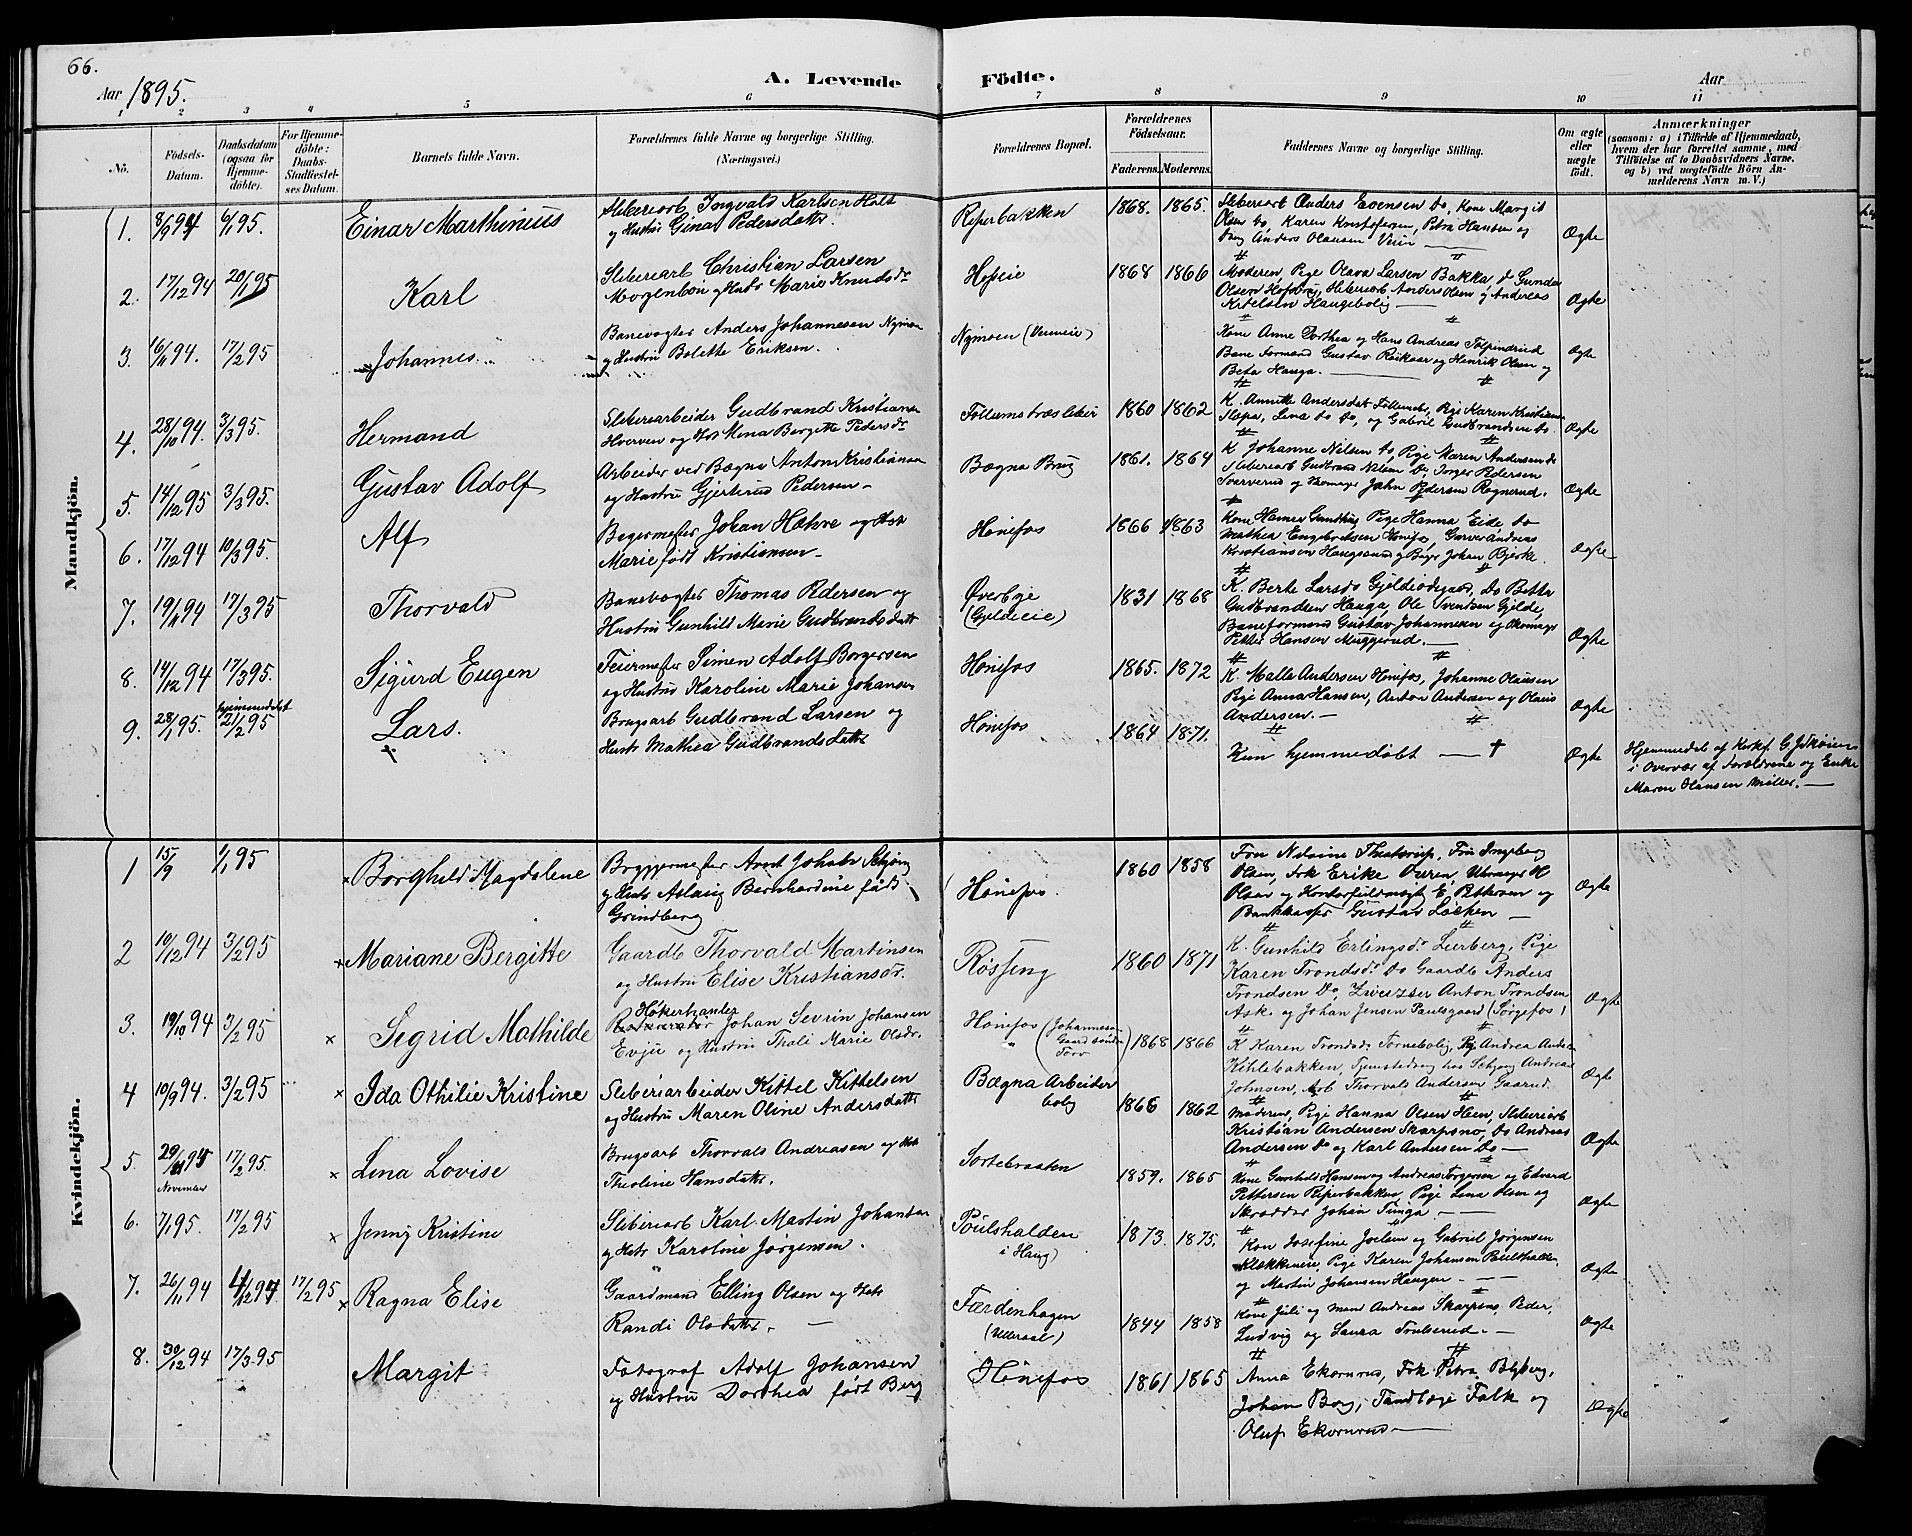 66.
Aar 1895.
A. Levende Födte.
Aar
1 2 3 4 5 6 7 8 9 10 11
No.
Födsels-Datum.
Daabsdatum (ogsaa for Hjemme-döbte).
For Hjemme-döbte: Daabs-Stadfæstel-ses Datum.
Barnets fulde Navn.
Forældrenes fulde Navne og borgerlige Stilling. (Næringsvei.)
Forældrenes Bopæl.
Forældrenes Födselsaar.
Faderens. Moderens.
Faddernes Navne og borgerlige Stilling.
Om ægte eller uægte födt.
Anmærkninger
(saasom: a) i Tilfælde af Hjemmedaab, hvem der har forrettet samme, med Tilföielse af to Daabsvidners Navne, og b) ved uægtefödte Börn An-melderens Navn m. V.)
Mandkjön.
1. 8/9 94 6/1 95. Einar Marthinius
Sliberiarb Ingvald Karlsen Holt
og Hustru Gina Pedersdatter.
Riperbakken 1868. 1865.
Sliberiarb Anders Evensen do, Kone Margit
Olsen do, Karen Kristofersen, Petra Hansen og
Ung Anders Olausen Veien
Ægte
2. 17/12 94 20/1 95 Karl
Sliberiarb Christian Larsen
Morgenbou og Hustr Marie Knudsdr
Hofseie 1868 1866
Moderen, Pige Olava Larsen Bakka, do Gunda
Olsen Hofsbug, Sliberiarb Anders Olsen og Andreas
Ketelsen Haugebolig
Ægte
3. 16/11 94. 17/2 95 Johannes.
Banevogter Anders Johannesen Nymoen
og Hustru Bolette Eriksen.
Nymoen (Vemeie)
Kone Anne Dorthea og Hans Andreas Tolpindrud
Bane formand Gustav Roikaar og Henrik Olsen og
Beta Hauga.
Ægte
4. 28/10 94. 3/3 95. Hermand
Sliberiarbeider Gudbrand Kristiansen
Hverven og Hstr Mina Bergette Pedersdr
Follums træsliberi 1860 1862
K. Annette Andersdat Follumsbr, Pige Karen Kristiansen
Slepa, Lina do do, og Gabriel Gudbrandsen do.
Ægte
5. 14/12 95 3/3 95. Gustav Adolf
Arbeider ved Bægna Anton Kristiansen
og Hustru Gjertrud Pedersen
Bægna Brug 1861. 1864
K Johanne Nilsen do, Pige Maren Andersen do
Sliberiarb Gudbrand Nilsen Do, Jorger Pedersen
Svarverud og Skomager John Pedersen Rognerud.
Ægte
6. 17/12 94 10/3 95. Alf
Bagermester Johan Hæhre og Hst
Marie født Kristiansen
Hønefos 1866 1863
Kone Hanna Gundhus, Pige Hanna Eide, do
Mathea Engebretsen Hønefos, Garver Andreas
Kristiansen Haugsund og Bager Johan Bjerke.
Ægte
7. 19/11 94 17/3 95 Thorvald
Banevogter Thomas Pedersen og
Hustru Gunhild Marie Gudbrandsdatt
Øverbye
(Gjeldeeie)
1831 1868
K. Berte Larsdr Gjeldeødegaard, Do Bette
Gudbrandsen Hauga, Ole Svendsen Gjelde,
Baneformand Gustav Johannesen og Skomager
Petter Hansen Muggerud.
Ægte
8. 14/12 94 17/3 95. Sigurd Eugen
Feiermester Simen Adolf Borgersen
og Hustru Karoline Marie Johansen
Hønefos 1865. 1872
K. Malla Andersen Hønefos, Johanne Olausen
Pige Anna Hansen, Anton Andersen og Olaus
Andersen.
Ægte
9. 28/1 95. hjemmedøbt 21/2 95 Lars. †
Brugsarb Gudbrand Larsen og
Hustr Mathea Gudbrandsdatter
Hønefos 1864 1871.
Kun hjemmedøbt — †
Ægte
Hjemmedøb af Kirkes.
i Overvær af Forældrene og Enke
Maren Olausen Møller.
Kvindekjön.
1 15/9 1/1 95 Borghild Magdalene
Bryggermester Arnt Johan Schjong
og Hustr Aslaug Bernhardine født
Grindberg
Hønefos. 1860 1858
Fru Nilsine Thostrup, Fru Ingeborg
Olsen, Frk Erike Ouren, Uhrmager H
Olsen og Kontorfuldmægt E. Pettersen og
Bankkasser Gustav Løcken
Ægte
2 10/12 94 3/2 95 Mariane Bergitte
Gaardb Thorvald Martinsen
og Hustru Elise Kristiansdr.
Røssing 1860 1871
K. Gunhild Erlingsdr Lierberg, Pige
Karen Trondsdr Do Gaardb Anders
Trondsen Do, Anton Trondsen
Ask. og Johan Jensen Paulsgaard (Sørgefos)
Ægte
3. 19/10 94 3/2 95 Sigrid Mathilde
Høkerhandler
Johan Severin Johansen
Evju og Hustru Thale Marie Olsdr.
Hønefos (Johannesen Gaard søndre Torv) 1868 1866
K Karen Trondsdr Tornebolig, Pig Andrea Anders
Kihlebakken, Tjenestedreng hos Schjong Andreas
Johnsen, Arb Thorvald Andersen Gaarud.
Ægte
4 10/9 94. 3/2 95 Ida Othilie Kristine
Sliberiarbeider Kittel Kittelsen
og Hustru Maren Oline Andersdatter
Bægna Arbeider
bolig
1866 1862
Moderen, Pige Hanna Olsen Heen, Sliberiarb
Kristian Andersen Skarpsno, Do Andreas
Andersen Do og Karl Andersen Do
Ægte
5. 29/11 94 November 17/2 95. Lina Lovise
Brugsarb Thorvald Andreasen og Hst
Theoline Hansdatter.
Sortebraaten 1859. 1865
Kone Gunhild Hansen og Andreas Torgersen og Edvard
Pettersen Riperbakken, Pige Lina Olsen og
Skrædder Johan Tunga
Ægte
6. 7/1 95. 17/2 95 Jenny Kristine
Sliberiarb Karl Martin Johansen
og Hstr Karoline Jørgensen.
Poulshalden
i Haug)
1873. 1875.
Kon Josefine Joelsen og Gabriel Jørgensen
Klækkeneie, Pige Karen Johansen Poulshald
og Martin Johansen Haugen.
Ægte
7. 26/11 94 4/12 94 17/2 95 Ragna Elise
Gaardmand Elling Olsen og Hstr
Randi Olsdatter.
Færdenhagen
(Ulleraal)
1844 1858
Kone Juli og mand Andreas Skarpsno, Peder,
Ludvig og Laura Foulserud.
Ægte
8. 30/12 94 17/3 95 Margit
Fotograf Adolf Johansen
og Hustru Dorthea født Berg
Hønefos 1861 1865
Anna Ekornrud, Frk Petra Blyberg,
Johan Borg, Tandlæge Falk og
Oluf Ekornrud
Ægte